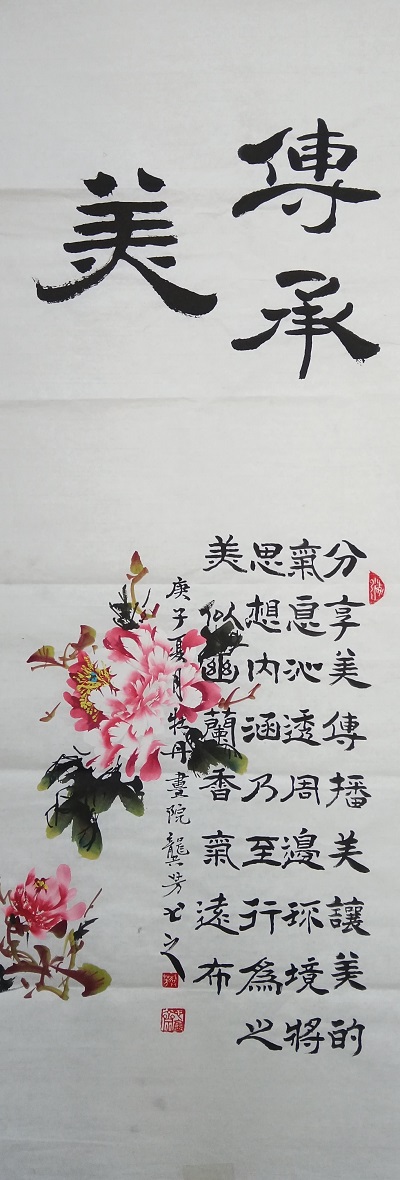 傳承
美
分享美傳播美讓美的
氣息沁透周邊环境將
思想内涵乃至行為之
美似幽蘭香氣遠布
庚子夏月牡丹畫院龔芳书之